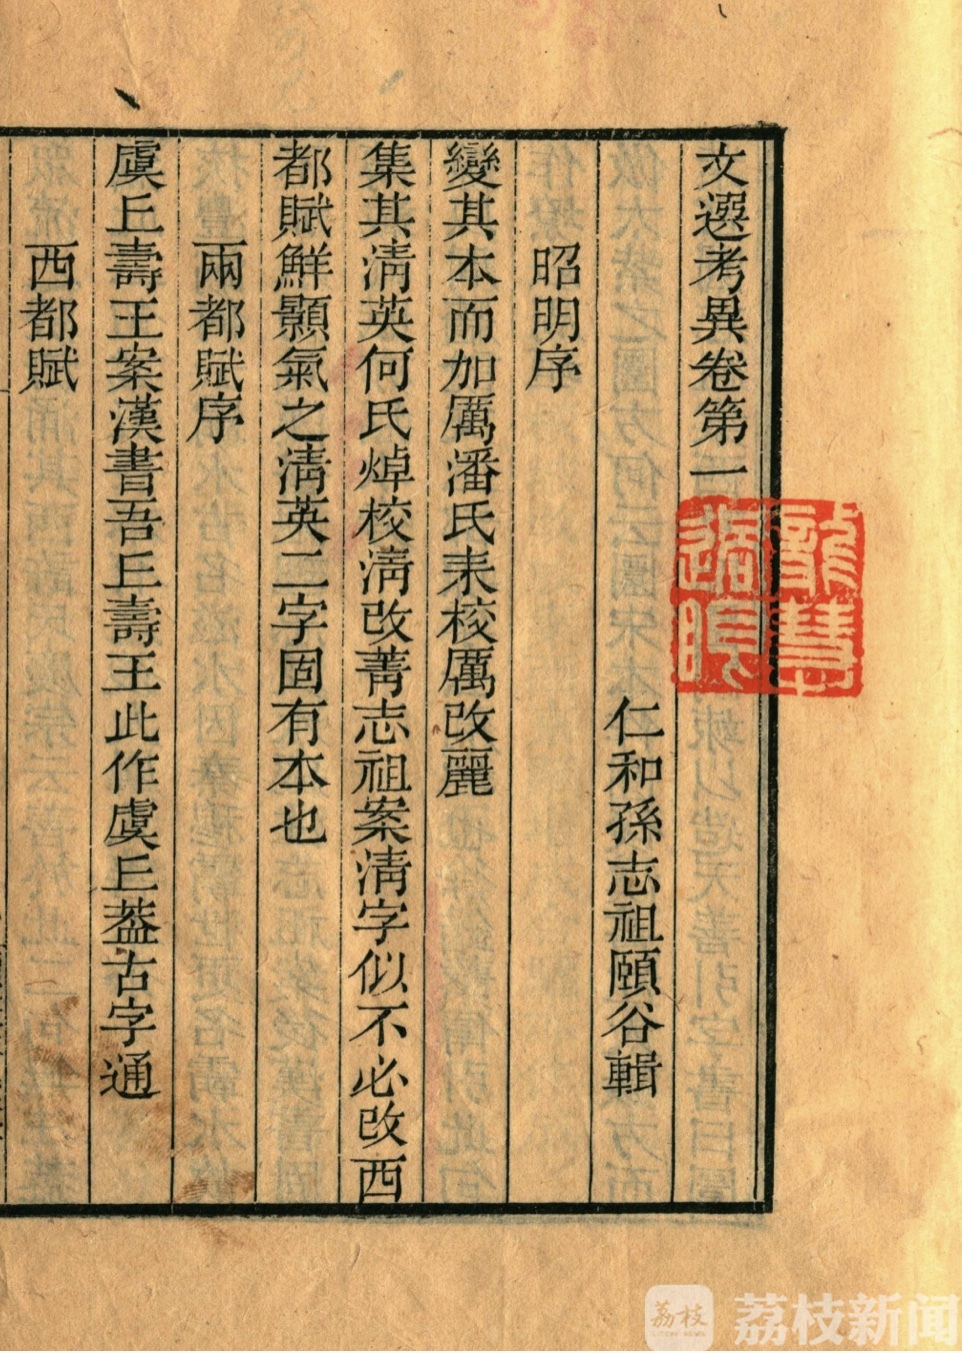 文選考異卷第一
仁和孫志祖頤谷輯
昭明序
變其本而加厲潘氏耒校厲改麗
集其淸英何氏焯校淸改菁志祖案淸字似不必改西
都賦鮮顥氣之淸英二字固有本也
兩都賦序
虞丘壽王案漢書吾丘壽王此作虞丘葢古字通
西都賦
荔枝
荔枝新闻